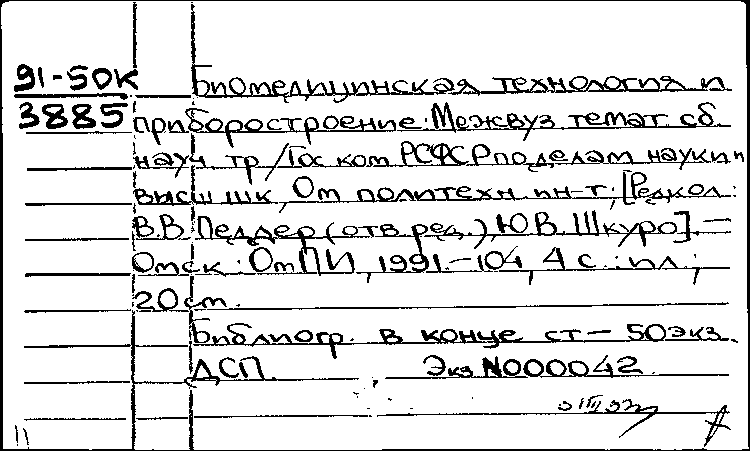 91-50К Биомедицинская технология и
3885 приборостроение: Межвуз. темат. сб.
науч. тр. / Гос. ком. РСФСР по делам науки и
высш. шк., Ом. политехн. ин-т; [Редкол.:
В.В. Педдер (отв. ред.), Ю.В. Шкуро]. —
Омск : ОмПИ, 1991. – 104, 4 с. : ил.;
20 см.
Библиогр. в конце ст – 50 экз.
ДСП. Экз N000042